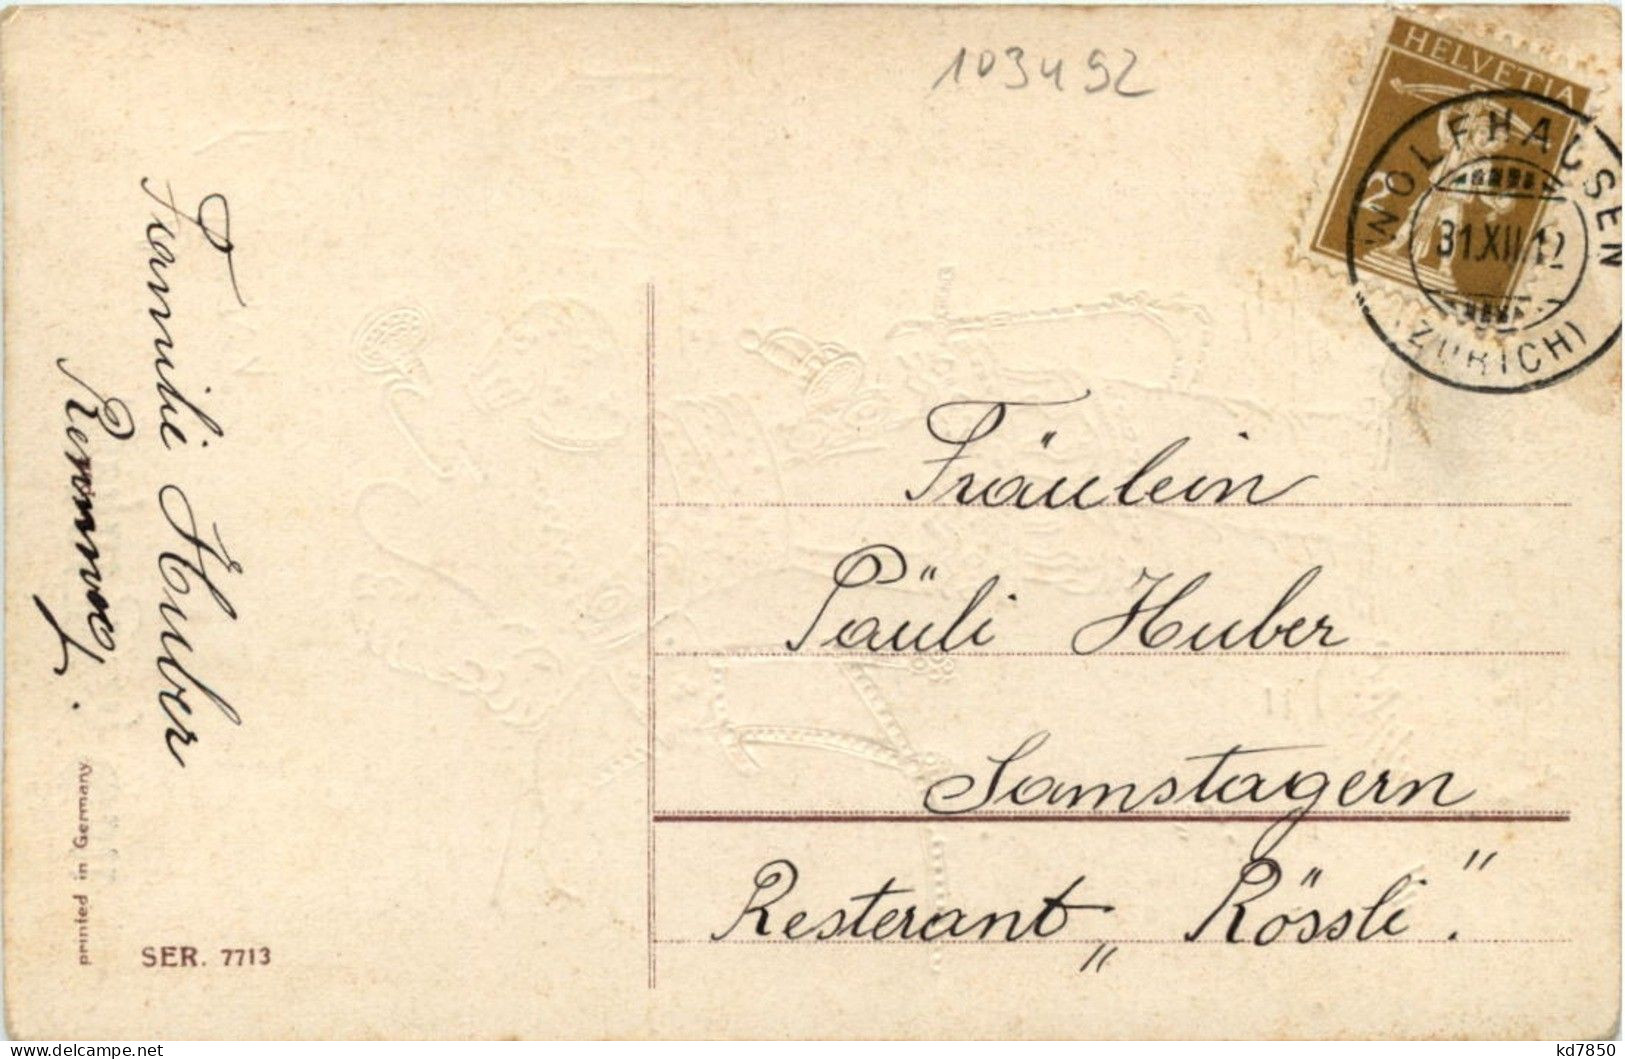 103492
HELVETIA
2
WOLFHAUSEN
31.XII.12
(ZÜRICH)
Fräulein
Päuli Huber
Samstagern
Resterant „Rössli."
Familie Huber
printed in Germany
SER. 7713
kd7850